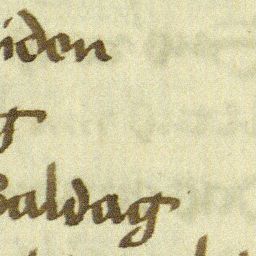 iden
g
Baldag